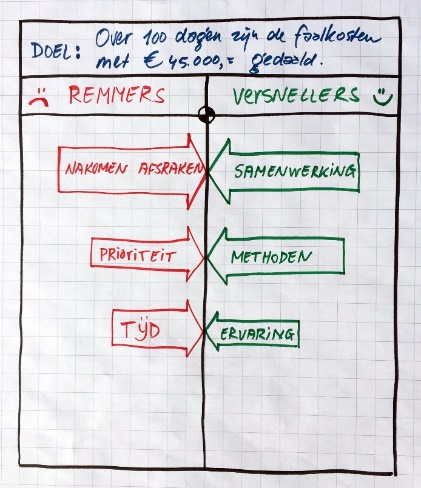 DOEL: Over 100 dagen zijn de faalkosten
met € 45.000,= gedaald.
REMMERS VERSNELLERS
NAKOMEN AFSPRAKEN SAMENWERKING
PRIORITEIT METHODEN
TIJD ERVARING